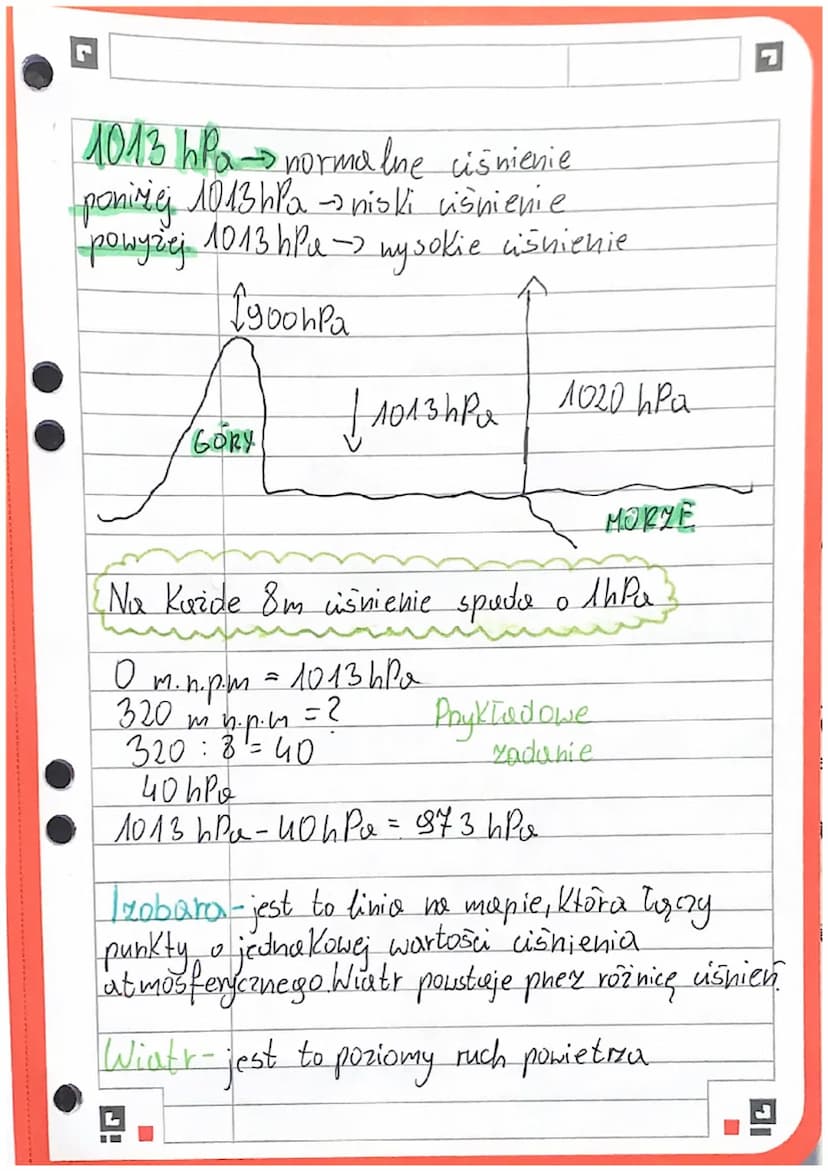 1013 hPa → normalne ciśnienie
poniżej 1013 hPa → niski ciśnienie
powyżej 1013 hPa → wysokie ciśnienie
↕900 hPa
↓ 1013 hPa
1020 hPa
GÓRY
MORZE
Na każde 8m ciśnienie spada o 1hPa
0 m.n.p.m = 1013 hPa
320 m n.p.m = ?
Przykładowe
320 : 8 = 40
zadanie
40 hPa
1013 hPa - 40 hPa = 973 hPa
Izobara - jest to linia na mapie, która łączy
punkty o jednakowej wartości ciśnienia
atmosferycznego. Wiatr powstaje przez różnicę ciśnień
Wiatr - jest to poziomy ruch powietrza